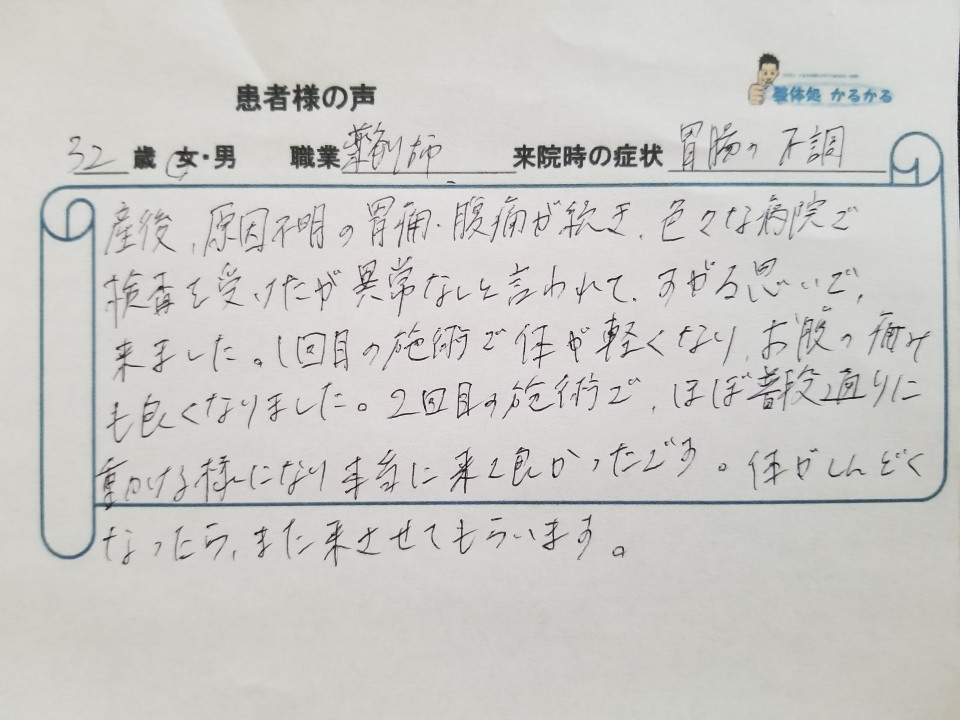 患者様の声
整体処 かるかる
32 歳 女・男 職業 薬剤師 来院時の症状 胃腸の不調
産後、原因不明の胃痛・腹痛が続き、色々な病院で
検査を受けたが異常なしと言われて、すがる思いで、
来ました。1回目の施術で体が軽くなり、お腹の痛み
も良くなりました。2回目の施術で、ほぼ普段通りに
動ける様になり本当に来て良かったです。体がしんどく
なったら、また来させてもらいます。